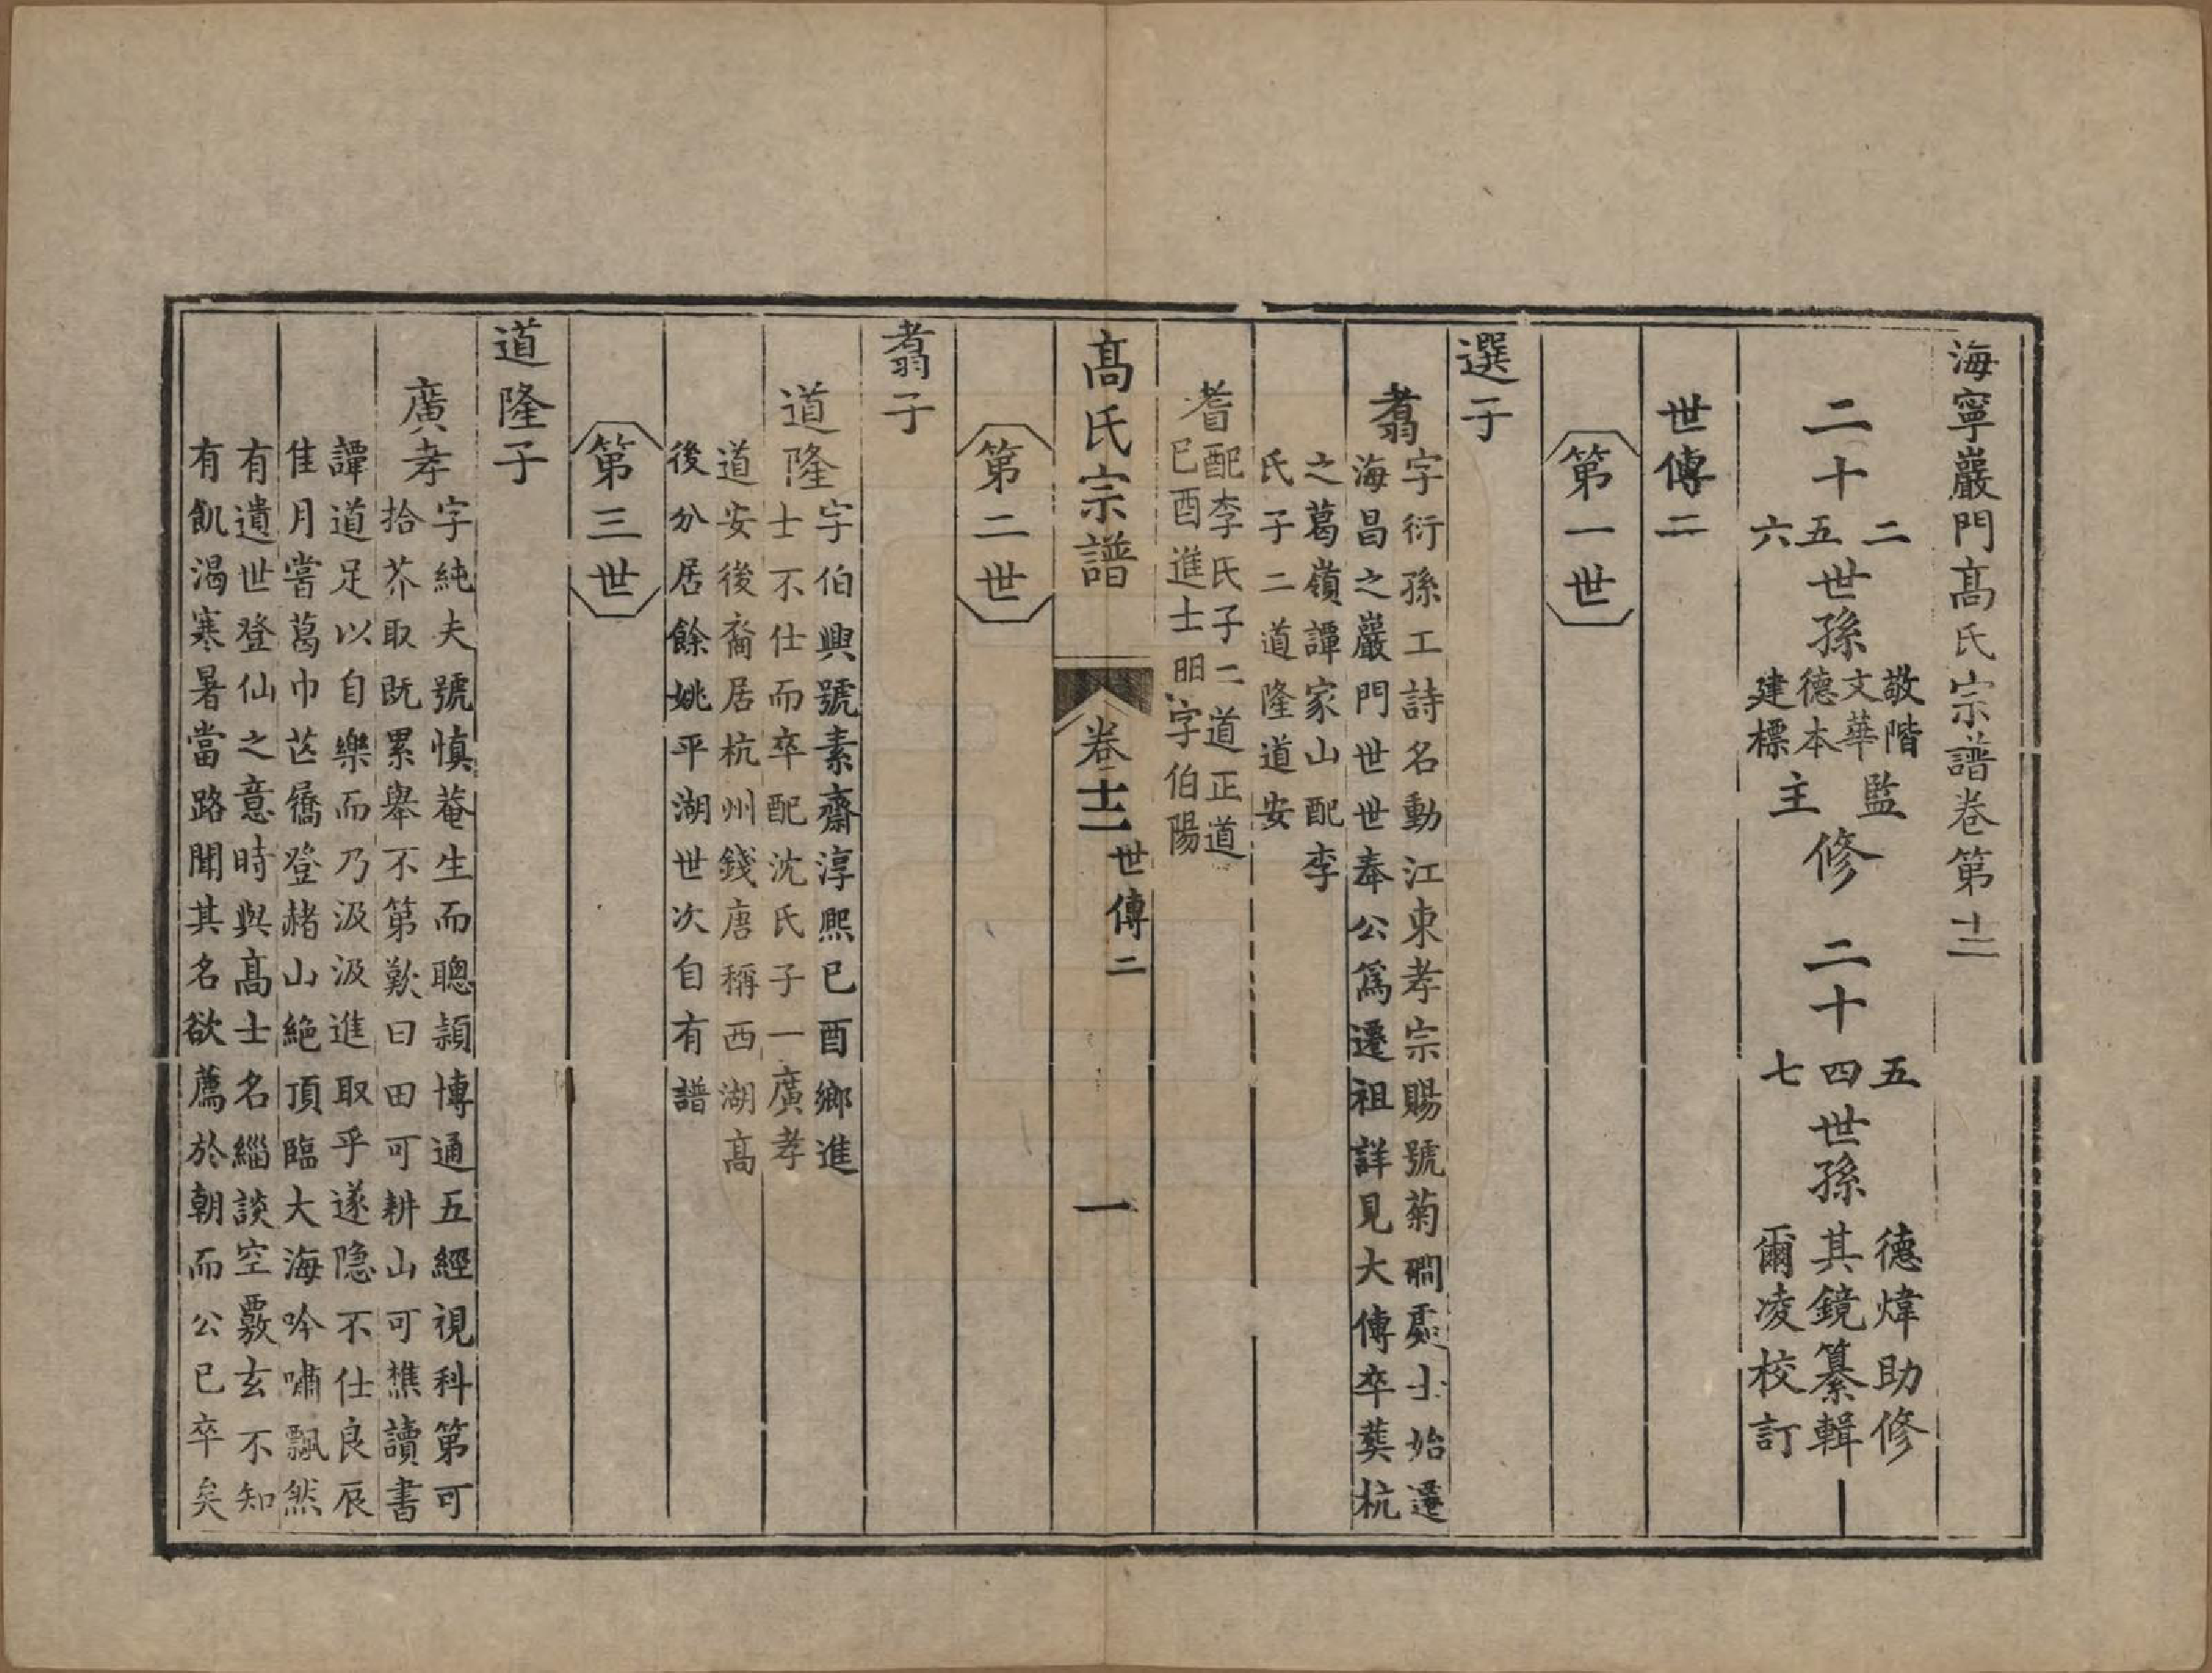 海寧巖門高氏宗譜卷第十二
二十
二五六
世孫
敬階
文華
德本
建標
監主
修
二十
五四七
世孫
德煒助修
其鏡纂輯
爾凌校訂
世傳二
第一世
選子
翥
字衍孫工詩名動江東孝宗賜號菊磵處士始遷
海昌之巖門世世奉公為遷祖詳見大傳卒葬杭
之葛嶺譚家山配李
氏子二道隆道安
耆
配李氏子二道正道
明字伯陽
己酉進士
高氏宗譜
卷十二
世傳二
一
第二世
翥子
道隆
字伯興號素齋淳熙已酉鄉進
士不仕而卒配沈氏子一廣孝
道安後裔居杭州錢唐稱西湖高
後分居餘姚平湖世次自有譜
第三世
道隆子
廣孝
字純夫號慎菴生而聰穎博通五經視科第可
拾芥取既累舉不第歎曰田可耕山可樵讀書
譚道足以自樂而乃汲汲進取乎遂隱不仕良辰
佳月嘗葛巾芒屩登赭山絕頂臨大海吟嘯飄然
有遺世登仙之意時與高士名緇談空覈玄不知
有飢渴寒暑當路聞其名欲薦於朝而公已卒矣